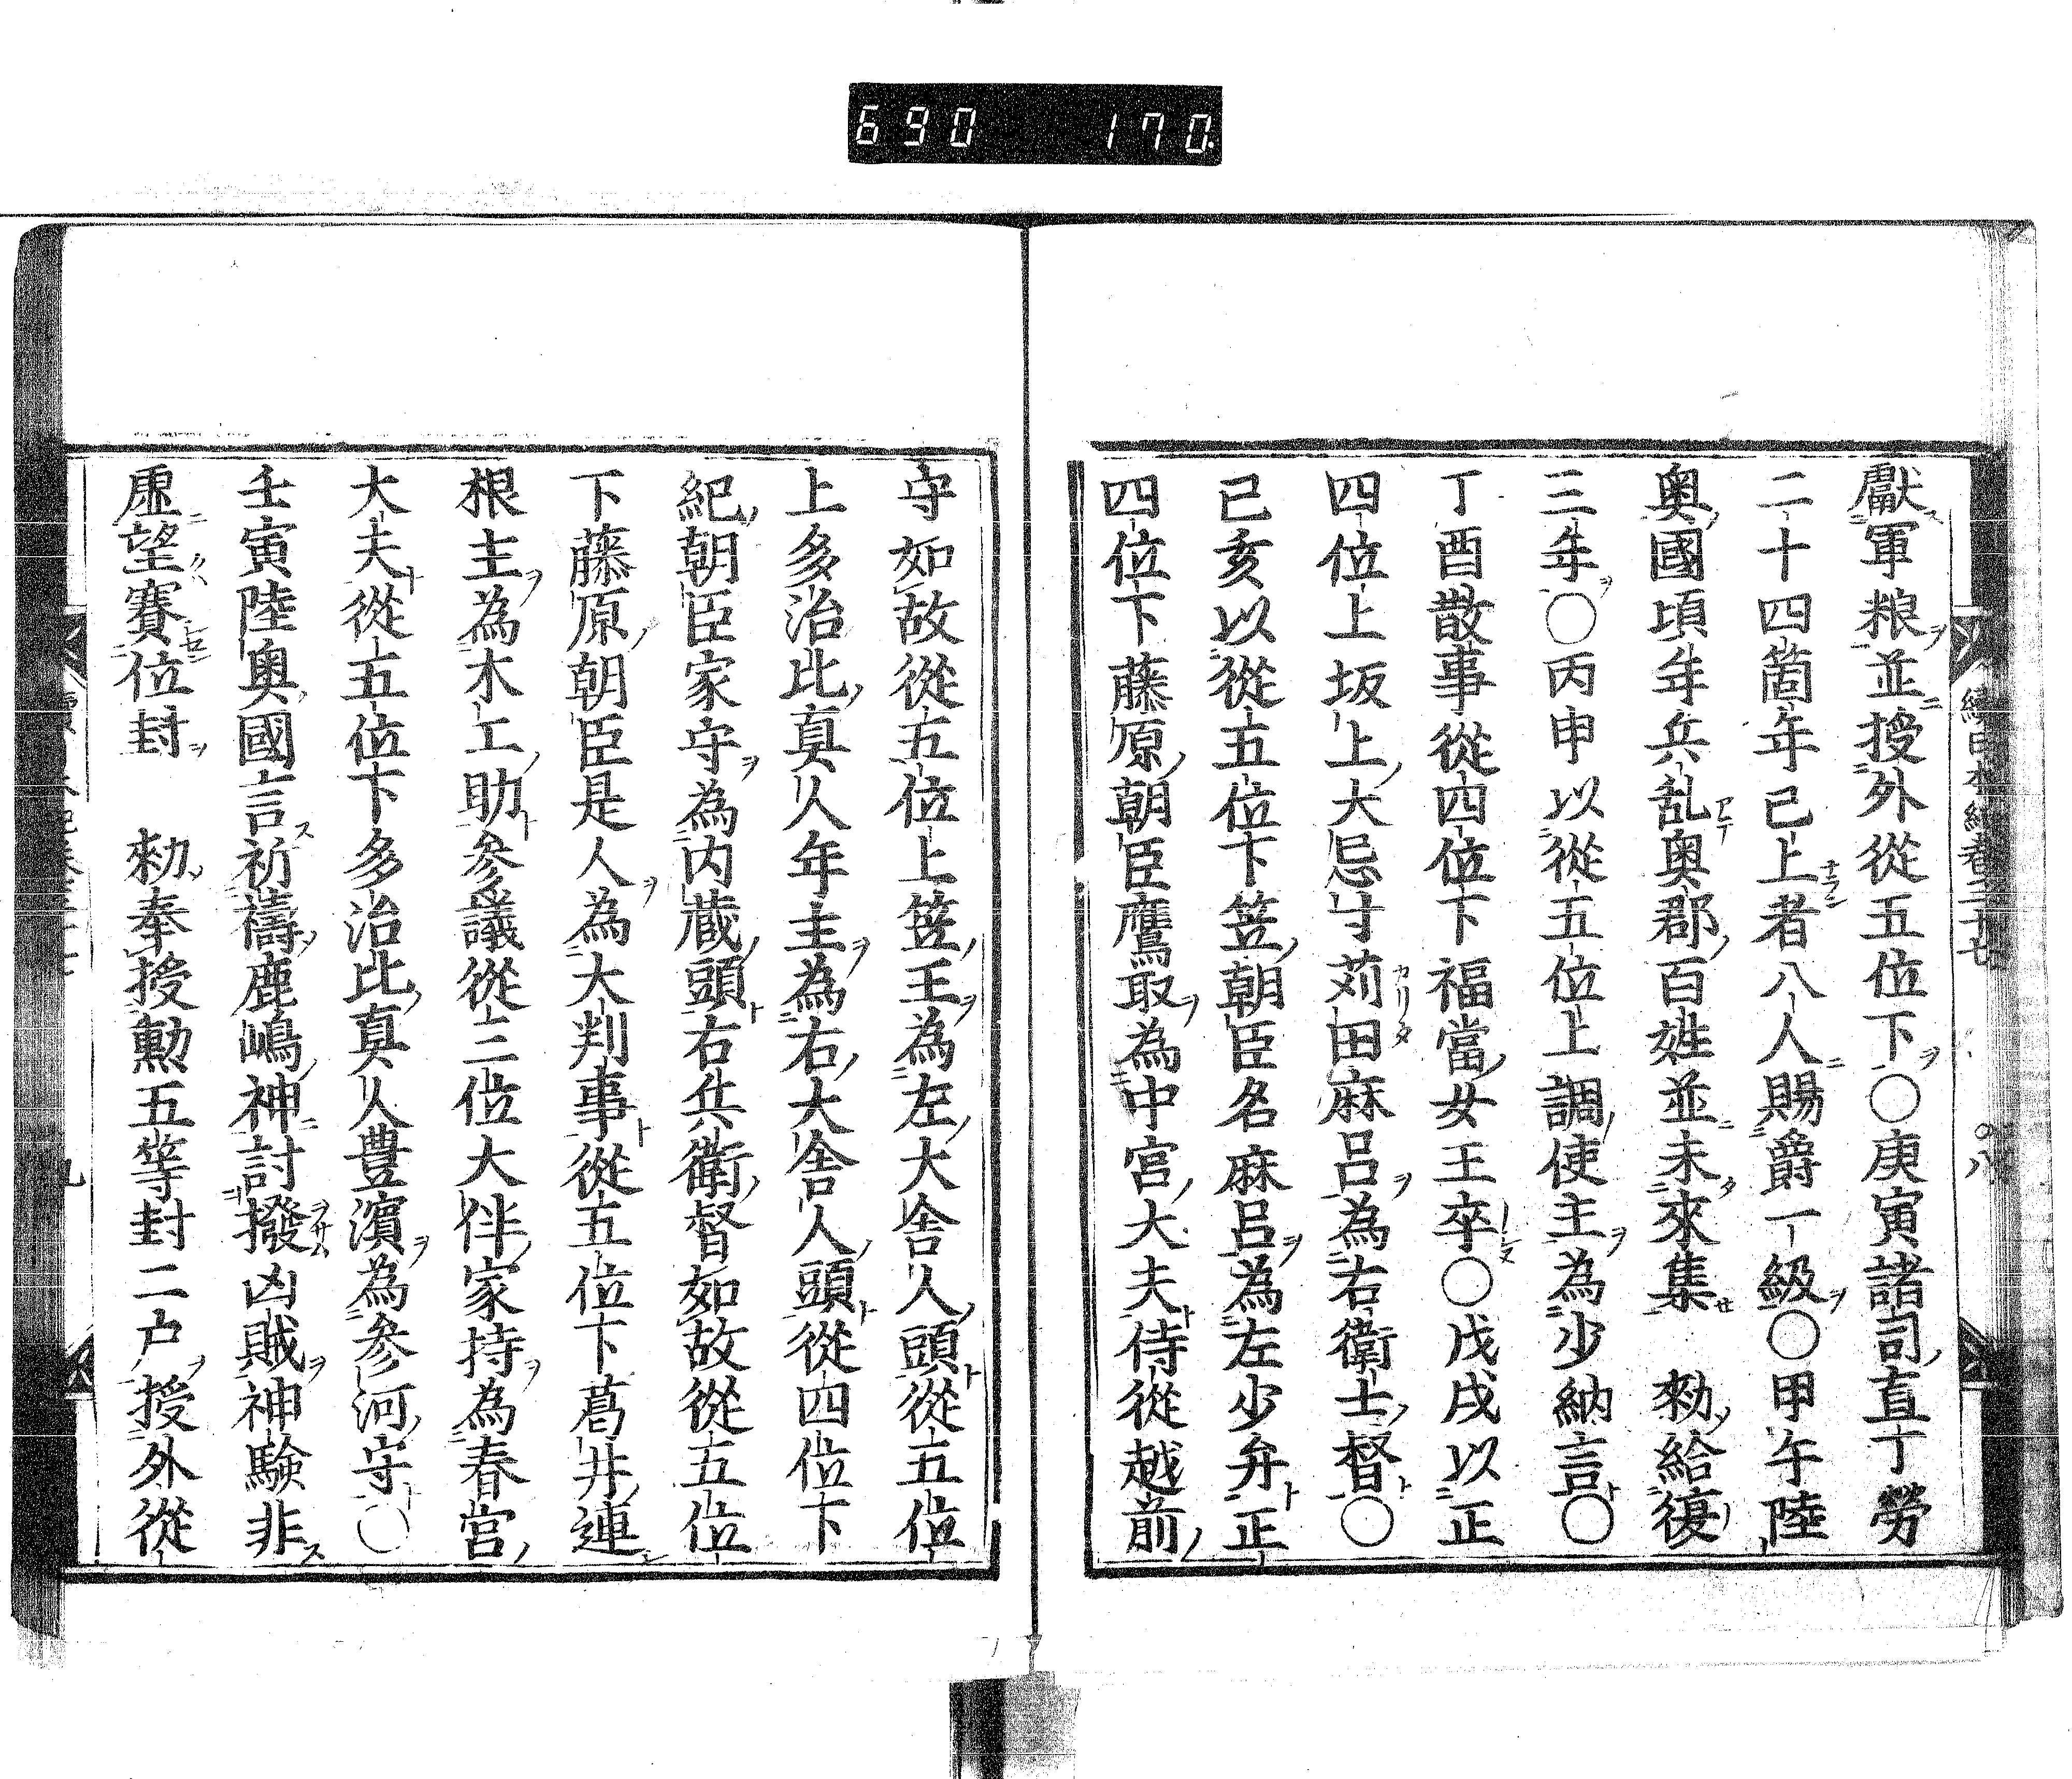 690 170
獻軍粮並授外從五位下○庚寅諸司直丁勞
二十四箇年已上者八人賜爵一級○甲午陸
奥國頃年兵乱奥郡百姓並未來集　勑給復
三年○丙申以從五位上調使主為少納言○
丁酉散事從四位下福當女王卒○戊戌以正
四位上坂上大忌寸苅田麻呂為右衛士督○
己亥以從五位下笠朝臣名麻呂為左少弁正
四位下藤原朝臣鷹取為中宮大夫侍從越前
守如故從五位上笠王為左大舎人頭從五位
上多治比真人年主為右大舎人頭從四位下
紀朝臣家守為内蔵頭右兵衛督如故從五位
下藤原朝臣是人為大判事從五位下葛井連
根主為木工助参議從三位大伴家持為春宮
大夫從五位下多治比真人豊濱為参河守○
壬寅陸奥國言祈禱鹿嶋神討撥凶賊神験非
虚望賽位封　勑奉授勲五等封二户授外從